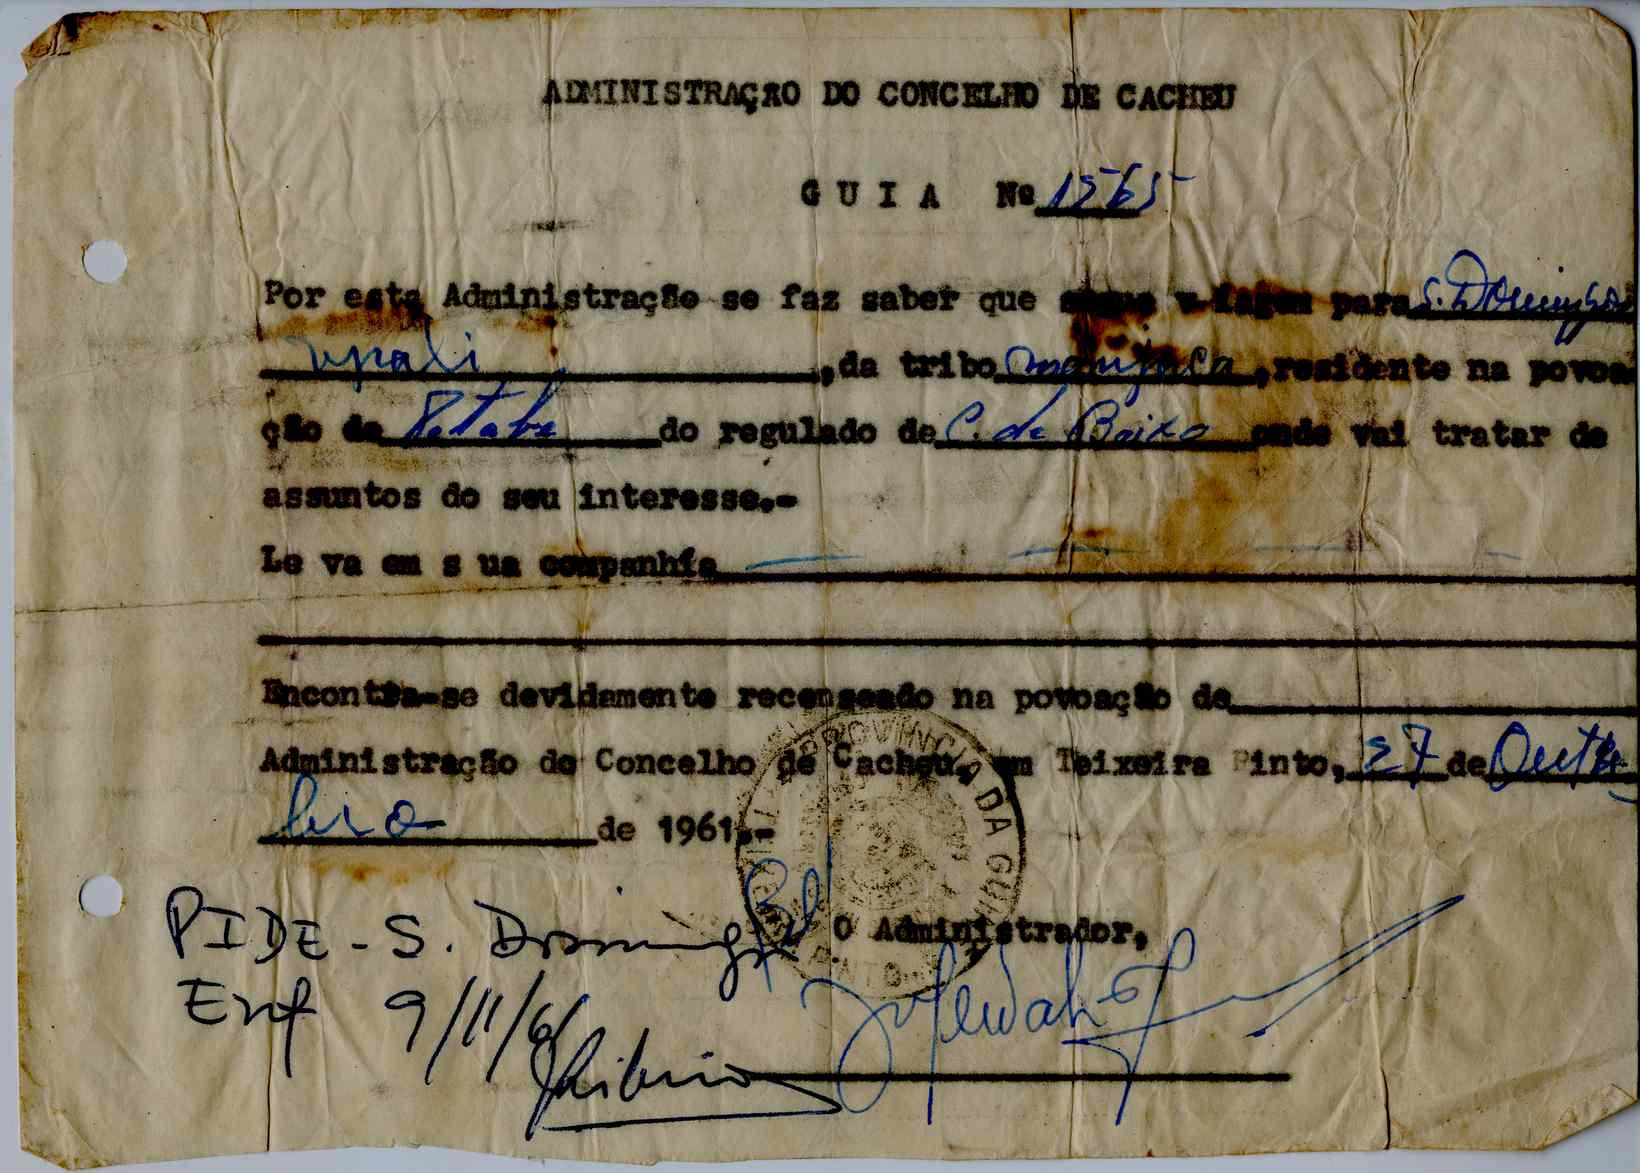 ADMINISTRAÇÃO DO CONCELHO DE CACHEU
G U I A Nº 1565
Por esta Administração se faz saber que segue v iagem para S. Domingos
, da tribo manjaca, residente na povoa
ção de do regulado de C. de Baixo onde vai tratar de
assuntos do seu interesse.-
Le va em s ua companhia
Encontra-se devidamente recenseado na povoação de
Administração do Concelho de Cacheu, em Teixeira Pinto, 27 de Outu
bro de 1961.-
PROVINCIA DA GUINÉ
O Administrador,
PIDE - S. Domingos
Ent 9/11/61
Ribeiro